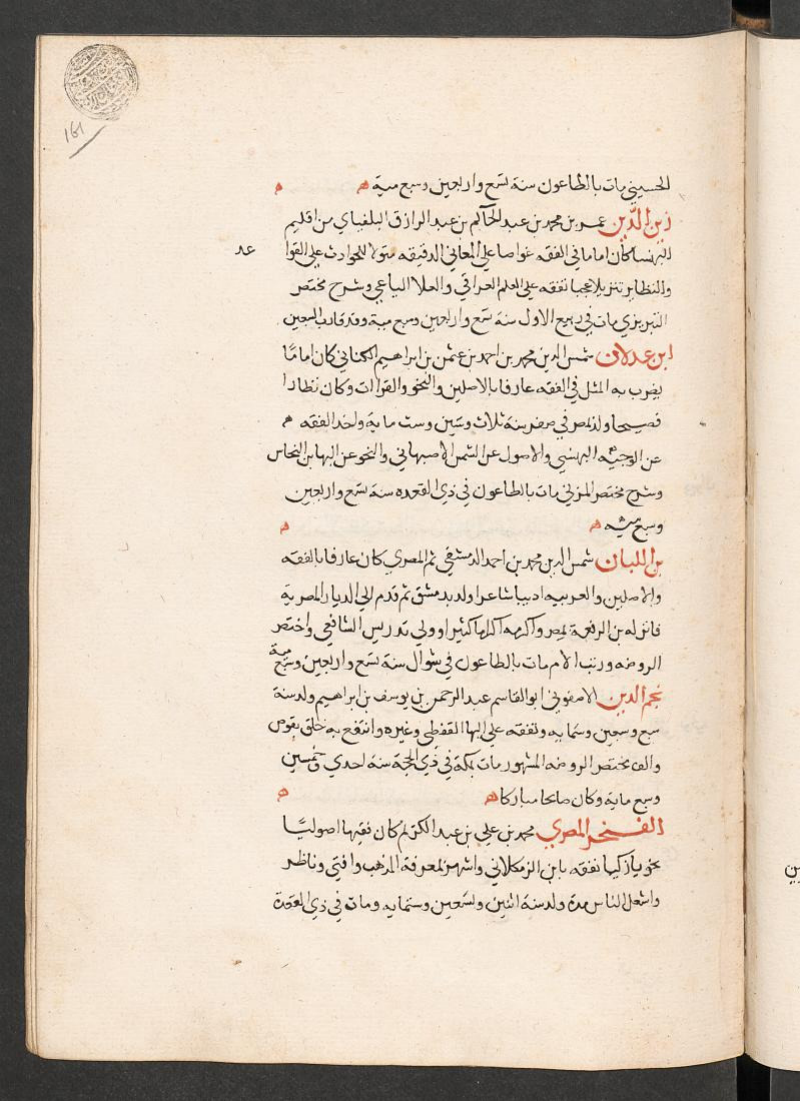 161
الحسيني مات بالطاعون سنة تسع واربعين وسبع مية ه ه
زين الدين عمر بن محمد بن عبد الحاكم بن عبد الرازق البلفياي من اقليم
البهنسا كان اماما في الفقه غواصا على المعاني الدقيقه منزلا للحوادث على القوا عد
والنظاير تنزيلا عجيبا تفقه على العلم العراقي والعلا الباجي وشرح مختصر
التبريزي مات في ربيع الاول سنة تسع واربعين وسبع مية وقد قارب السبعين
ابن عدلان شمس الدين محمد بن احمد بن عثمن بن ابراهيم الكناني كان امامًا
يضرب به المثل في الفقه عارفا بالاصلين والنحو والقراات وكان نظارا
فصيحا ولد بمصر في صفر سنة ثلاث وستين وست ماية واخذ الفقه ه
عن الوجيه البهنسي والاصول عن الشمس الاصبهاني والنحو عن البها بن النحاس
وشرح مختصر المزني مات بالطاعون في ذي القعده سنة تسع واربعين
وسبع مئيه ه ه
بن اللبان شمس الدين محمد بن احمد الدمشقي ثم المصري كان عارفا بالفقه
والاصلين والعربيه اديبا شاعرا ولد بدمشق ثم قدم الى الديار المصرية
فانزله بن الرفعة بمصر واكرمه اكراما كثيرا وولي تدريس الشافعي واختصر
الروضه ورتب الام مات بالطاعون في شوال سنة تسع واربعين وسبع مية
نجم الدين الاصفوني ابو القاسم عبد الرحمن بن يوسف بن ابراهيم ولد سنة
سبع وسبعين وستمايه وتفقه على البها القفطي وغيره وانتفع به خلق بقوص
والف مختصر الروضه المشهور مات بمكة في ذي الحجة سنة احدي وخمسين
وسبع ماية وكان صالحا مباركا ه ه
الفخر المصري محمد بن علي بن عبد الكريم كان فقيها اصوليًا
نحويا ذكيا تفقه بابن الزملكاني واشهر بمعرفة المذهب وافتي وناظر
واشغل الناس مدة ولد سنة اثنين وتسعين وستمايه ومات في ذي القعدة